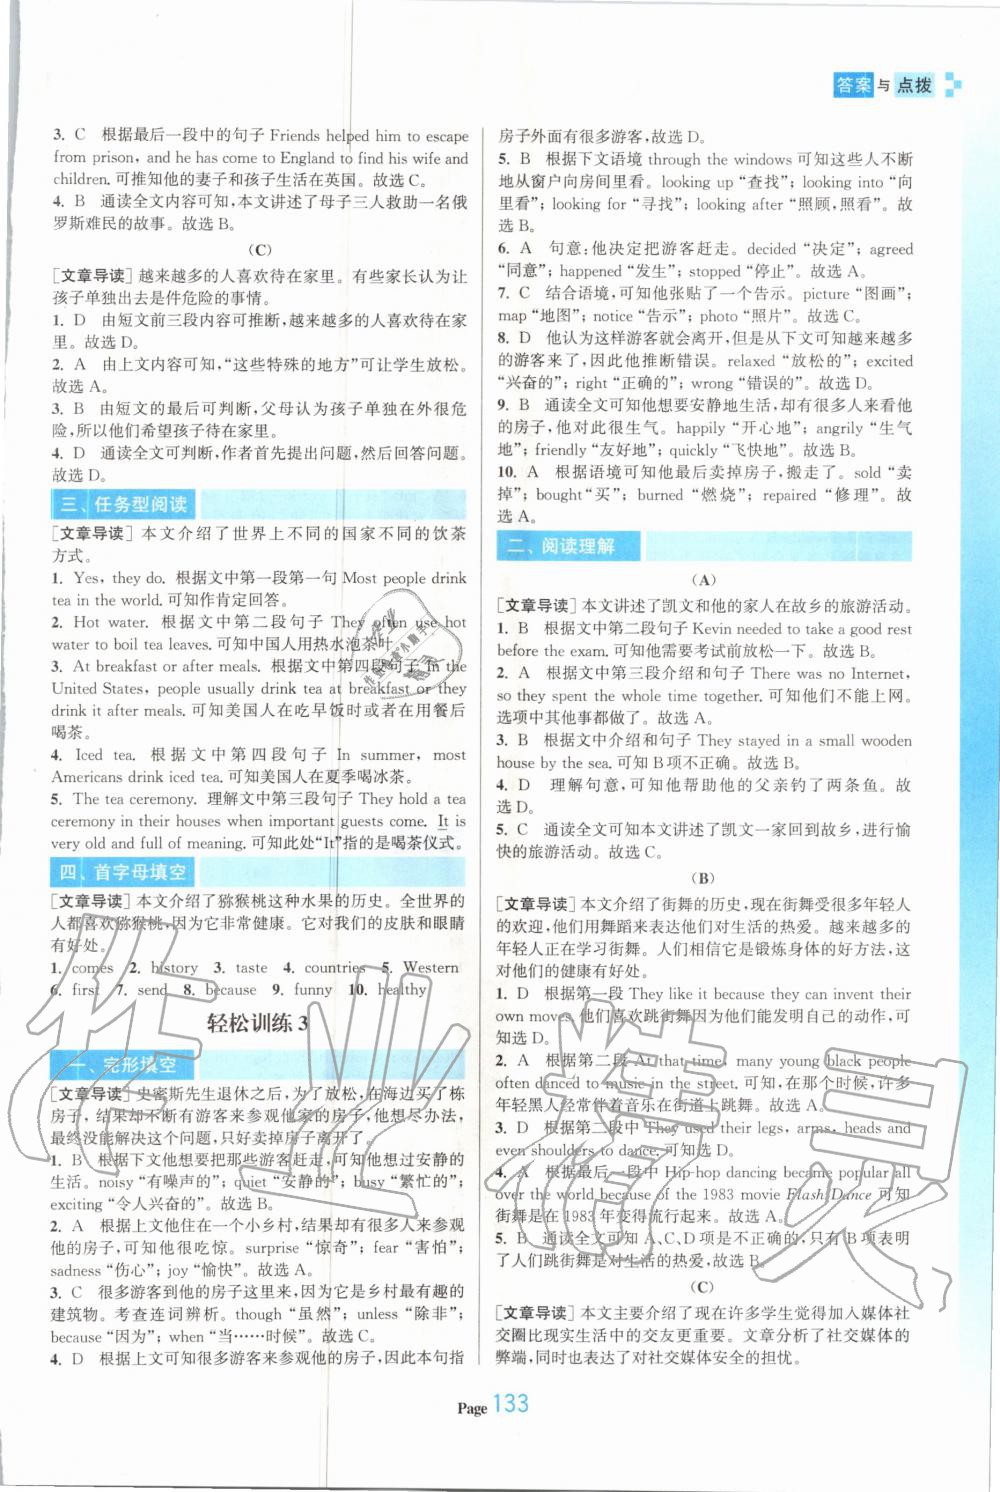 答案与点拨
3. C 根据最后一段中的句子 Friends helped him to escape
from prison, and he has come to England to find his wife and
children. 可推知他的妻子和孩子生活在英国。故选 C。
4. B 通读全文内容可知,本文讲述了母子三人救助一名俄
罗斯难民的故事。故选 B。
(C)
[文章导读] 越来越多的人喜欢待在家里。有些家长认为让
孩子单独出去是件危险的事情。
1. D 由短文前三段内容可推断,越来越多的人喜欢待在家
里。故选 D。
2. A 由上文内容可知,“这些特殊的地方”可让学生放松。
故选 A。
3. B 由短文的最后可判断,父母认为孩子单独在外很危
险,所以他们希望孩子待在家里。
4. D 通读全文可判断,作者首先提出问题,然后回答问题。
故选 D。
三、任务型阅读
[文章导读] 本文介绍了世界上不同的国家不同的饮茶
方式。
1. Yes, they do. 根据文中第一段第一句 Most people drink
tea in the world. 可知作肯定回答。
2. Hot water. 根据文中第二段句子 They often use hot
water to boil tea leaves. 可知中国人用热水泡茶叶。
3. At breakfast or after meals. 根据文中第四段句子 In the
United States, people usually drink tea at breakfast or they
drink it after meals. 可知美国人在吃早饭时或者在用餐后
喝茶。
4. Iced tea. 根据文中第四段句子 In summer, most
Americans drink iced tea. 可知美国人在夏季喝冰茶。
5. The tea ceremony. 理解文中第三段句子 They hold a tea
ceremony in their houses when important guests come. It is
very old and full of meaning. 可知此处“It”指的是喝茶仪式。
四、首字母填空
[文章导读] 本文介绍了猕猴桃这种水果的历史。全世界的
人都喜欢猕猴桃,因为它非常健康。它对我们的皮肤和眼睛
有好处。
1. comes 2. history 3. taste 4. countries 5. Western
6. first 7. send 8. because 9. funny 10. healthy
轻松训练 3
一、完形填空
[文章导读] 史密斯先生退休之后,为了放松,在海边买了栋
房子,结果却不断有游客来参观他家的房子,他想尽办法,
最终没能解决这个问题,只好卖掉房子离开了。
1. B 根据下文他想要把那些游客赶走,可知他想过安静的
生活。noisy “有噪声的”; quiet “安静的”; busy “繁忙的”;
exciting “令人兴奋的”。故选 B。
2. A 根据上文他住在一个小乡村,结果却有很多人来参观
他的房子,可知他很吃惊。surprise “惊奇”; fear “害怕”;
sadness “伤心”; joy “愉快”。故选 A。
3. C 很多游客到他的房子这里来,因为它是乡村最有趣的
建筑物。考查连词辨析。though “虽然”; unless “除非”;
because “因为”; when “当……时候”。故选 C。
4. D 根据上文可知很多游客来参观他的房子,因此本句指
房子外面有很多游客,故选 D。
5. B 根据下文语境 through the windows 可知这些人不断
地从窗户向房间里看。looking up “查找”; looking into “向
里看”; looking for “寻找”; looking after “照顾,照看”。故
选 B。
6. A 句意:他决定把游客赶走。decided “决定”; agreed
“同意”; happened “发生”; stopped “停止”。故选 A。
7. C 结合语境,可知他张贴了一个告示。picture “图画”;
map “地图”; notice “告示”; photo “照片”。故选 C。
8. D 他认为这样游客就会离开,但是从下文可知越来越多
的游客来了,因此他推断错误。relaxed “放松的”; excited
“兴奋的”; right “正确的”; wrong “错误的”。故选 D。
9. B 通读全文可知他想要安静地生活,却有很多人来看他
的房子,他对此很生气。happily “开心地”; angrily “生气
地”; friendly “友好地”; quickly “飞快地”。故选 B。
10. A 根据语境可知他最后卖掉房子,搬走了。sold “卖
掉”; bought“买”; burned “燃烧”; repaired “修理”。故
选 A。
二、阅读理解
(A)
[文章导读] 本文讲述了凯文和他的家人在故乡的旅游活动。
1. B 根据文中第二段句子 Kevin needed to take a good rest
before the exam. 可知他需要考试前放松一下。故选 B。
2. A 根据文中第三段介绍和句子 There was no Internet,
so they spent the whole time together. 可知他们不能上网。
选项中其他事都做了。故选 A。
3. B 根据文中介绍和句子 They stayed in a small wooden
house by the sea. 可知 B 项不正确。故选 B。
4. D 理解句意,可知他帮助他的父亲钓了两条鱼。故
选 D。
5. C 通读全文可知本文讲述了凯文一家回到故乡,进行愉
快的旅游活动。故选 C。
(B)
[文章导读] 本文介绍了街舞的历史,现在街舞受很多年轻人
的欢迎,他们用舞蹈来表达他们对生活的热爱。越来越多的
年轻人正在学习街舞。人们相信它是锻炼身体的好方法,这
对他们的健康有好处。
1. D 根据第一段 They like it because they can invent their
own moves. 他们喜欢跳街舞因为他们能发明自己的动作,可
知选 D。
2. A 根据第二段 At that time, many young black people
often danced to music in the street. 可知,在那个时候,许多
年轻黑人经常伴着音乐在街道上跳舞。故选 A。
3. D 根据第二段中 They used their legs, arms, heads and
even shoulders to dance. 可知选 D。
4. A 根据最后一段中 Hip-hop dancing became popular all
over the world because of the 1983 movie Flash Dance 可知
街舞是在 1983 年变得流行起来。故选 A。
5. B 通读全文可知 A、C、D 项是不正确的,只有 B 项表明
了人们跳街舞是对生活的热爱,故选 B。
(C)
[文章导读] 本文主要介绍了现在许多学生觉得加入媒体社
交圈比现实生活中的交友更重要。文章分析了社交媒体的
弊端,同时也表达了对社交媒体安全的担忧。
Page 133
作业精灵